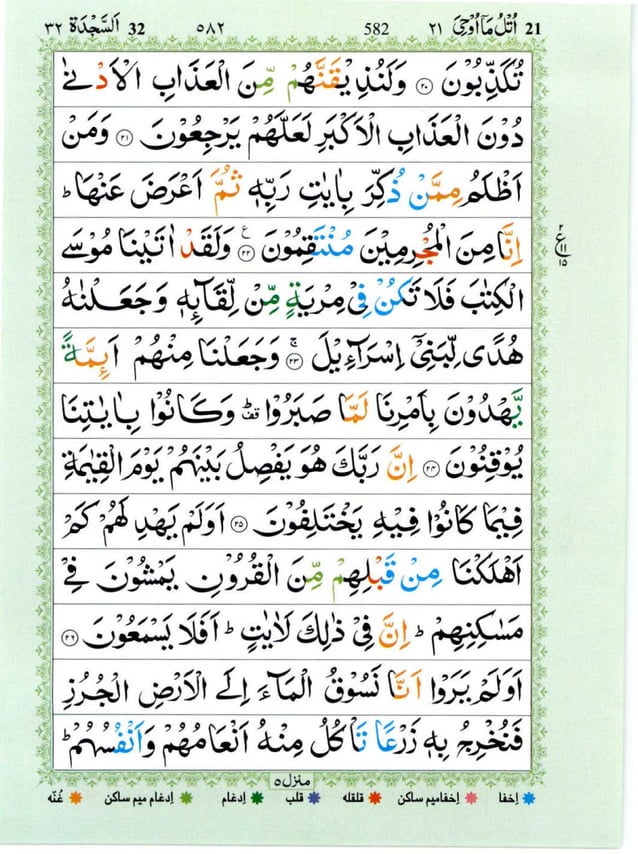 اَلسَّجْدَة ٣٢ 32 ٥٨٢ 582 اُتْلُ مَآ اُوْحِیَ ٢١ 21
تُكَذِّبُوْنَ ﴿٢٠﴾ وَلَنُذِيْقَنَّهُمْ مِّنَ الْعَذَابِ الْاَدْنٰى
دُوْنَ الْعَذَابِ الْاَكْبَرِ لَعَلَّهُمْ يَرْجِعُوْنَ ﴿٢١﴾ وَمَنْ
اَظْلَمُ مِمَّنْ ذُكِّرَ بِاٰيٰتِ رَبِّهٖ ثُمَّ اَعْرَضَ عَنْهَا ؕ
اِنَّا مِنَ الْمُجْرِمِيْنَ مُنْتَقِمُوْنَ ﴿٢٢﴾ وَلَقَدْ اٰتَيْنَا مُوْسَى
٢ ع ١١ ١٥
الْكِتٰبَ فَلَا تَكُنْ فِيْ مِرْيَةٍ مِّنْ لِّقَآئِهٖ وَجَعَلْنٰهُ
هُدًى لِّبَنِيْٓ اِسْرَآءِيْلَ ﴿٢٣﴾ وَجَعَلْنَا مِنْهُمْ اَئِمَّةً
يَّهْدُوْنَ بِاَمْرِنَا لَمَّا صَبَرُوْا ؕ وَكَانُوْا بِاٰيٰتِنَا
يُوْقِنُوْنَ ﴿٢٤﴾ اِنَّ رَبَّكَ هُوَ يَفْصِلُ بَيْنَهُمْ يَوْمَ الْقِيٰمَةِ
فِيْمَا كَانُوْا فِيْهِ يَخْتَلِفُوْنَ ﴿٢٥﴾ اَوَلَمْ يَهْدِ لَهُمْ كَمْ
اَهْلَكْنَا مِنْ قَبْلِهِمْ مِّنَ الْقُرُوْنِ يَمْشُوْنَ فِيْ
مَسٰكِنِهِمْ ؕ اِنَّ فِيْ ذٰلِكَ لَاٰيٰتٍ ؕ اَفَلَا يَسْمَعُوْنَ ﴿٢٦﴾
اَوَلَمْ يَرَوْا اَنَّا نَسُوْقُ الْمَآءَ اِلَى الْاَرْضِ الْجُرُزِ
فَنُخْرِجُ بِهٖ زَرْعًا تَاْكُلُ مِنْهُ اَنْعَامُهُمْ وَاَنْفُسُهُمْ ؕ
منزل ٥
اِخفا اِخفامیم ساکن قلقله قلب اِدغام اِدغام میم ساکن غُنّه